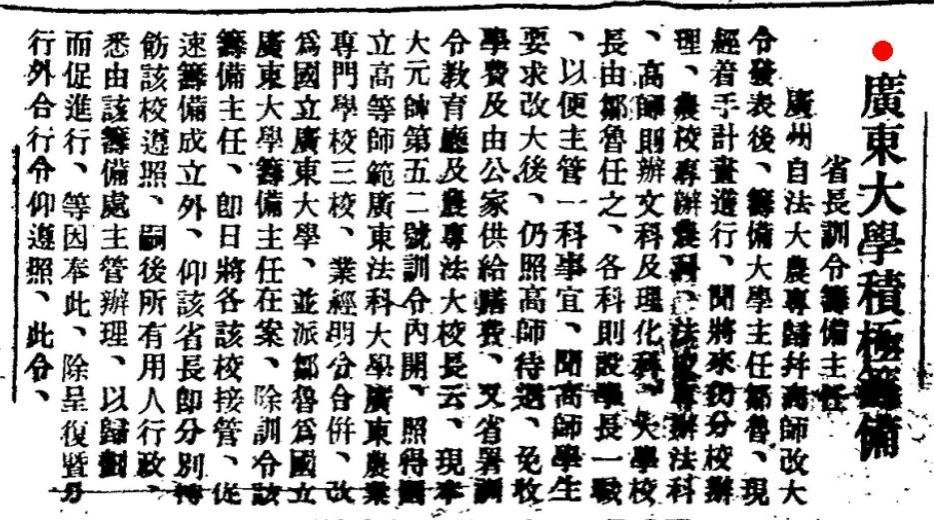 廣東大學積極籌備
省長訓令籌備主任
廣州自法大農專歸并高師改大
令發表後、籌備大學主任鄒魯、現
經着手計畫進行、聞將來仍分校辦
理、農校專辦農科、法校專辦法科
、高師則辦文科及理化科、大學校
長由鄒魯任之、各科則設學長一職
、以便主管一科事宜、聞高師學生
要求改大後、仍照高師待遇、免收
學費及由公家供給膳費、又省署訓
令教育廳及農專法大校長云、現奉
大元帥第五二號訓令內開、照得國
立高等師範廣東法科大學廣東農業
專門學校三校、業經明令合併、改
爲國立廣東大學、並派鄒魯爲國立
廣東大學籌備主任在案、除訓令該
籌備主任、卽日將各該校接管、從
速籌備成立外、仰該省長卽分別轉
飭該校遵照、嗣後所有用人行政、
悉由該籌備處主管辦理、以歸劃
而促進行、等因奉此、除呈復暨分
行外合行令仰遵照、此令、